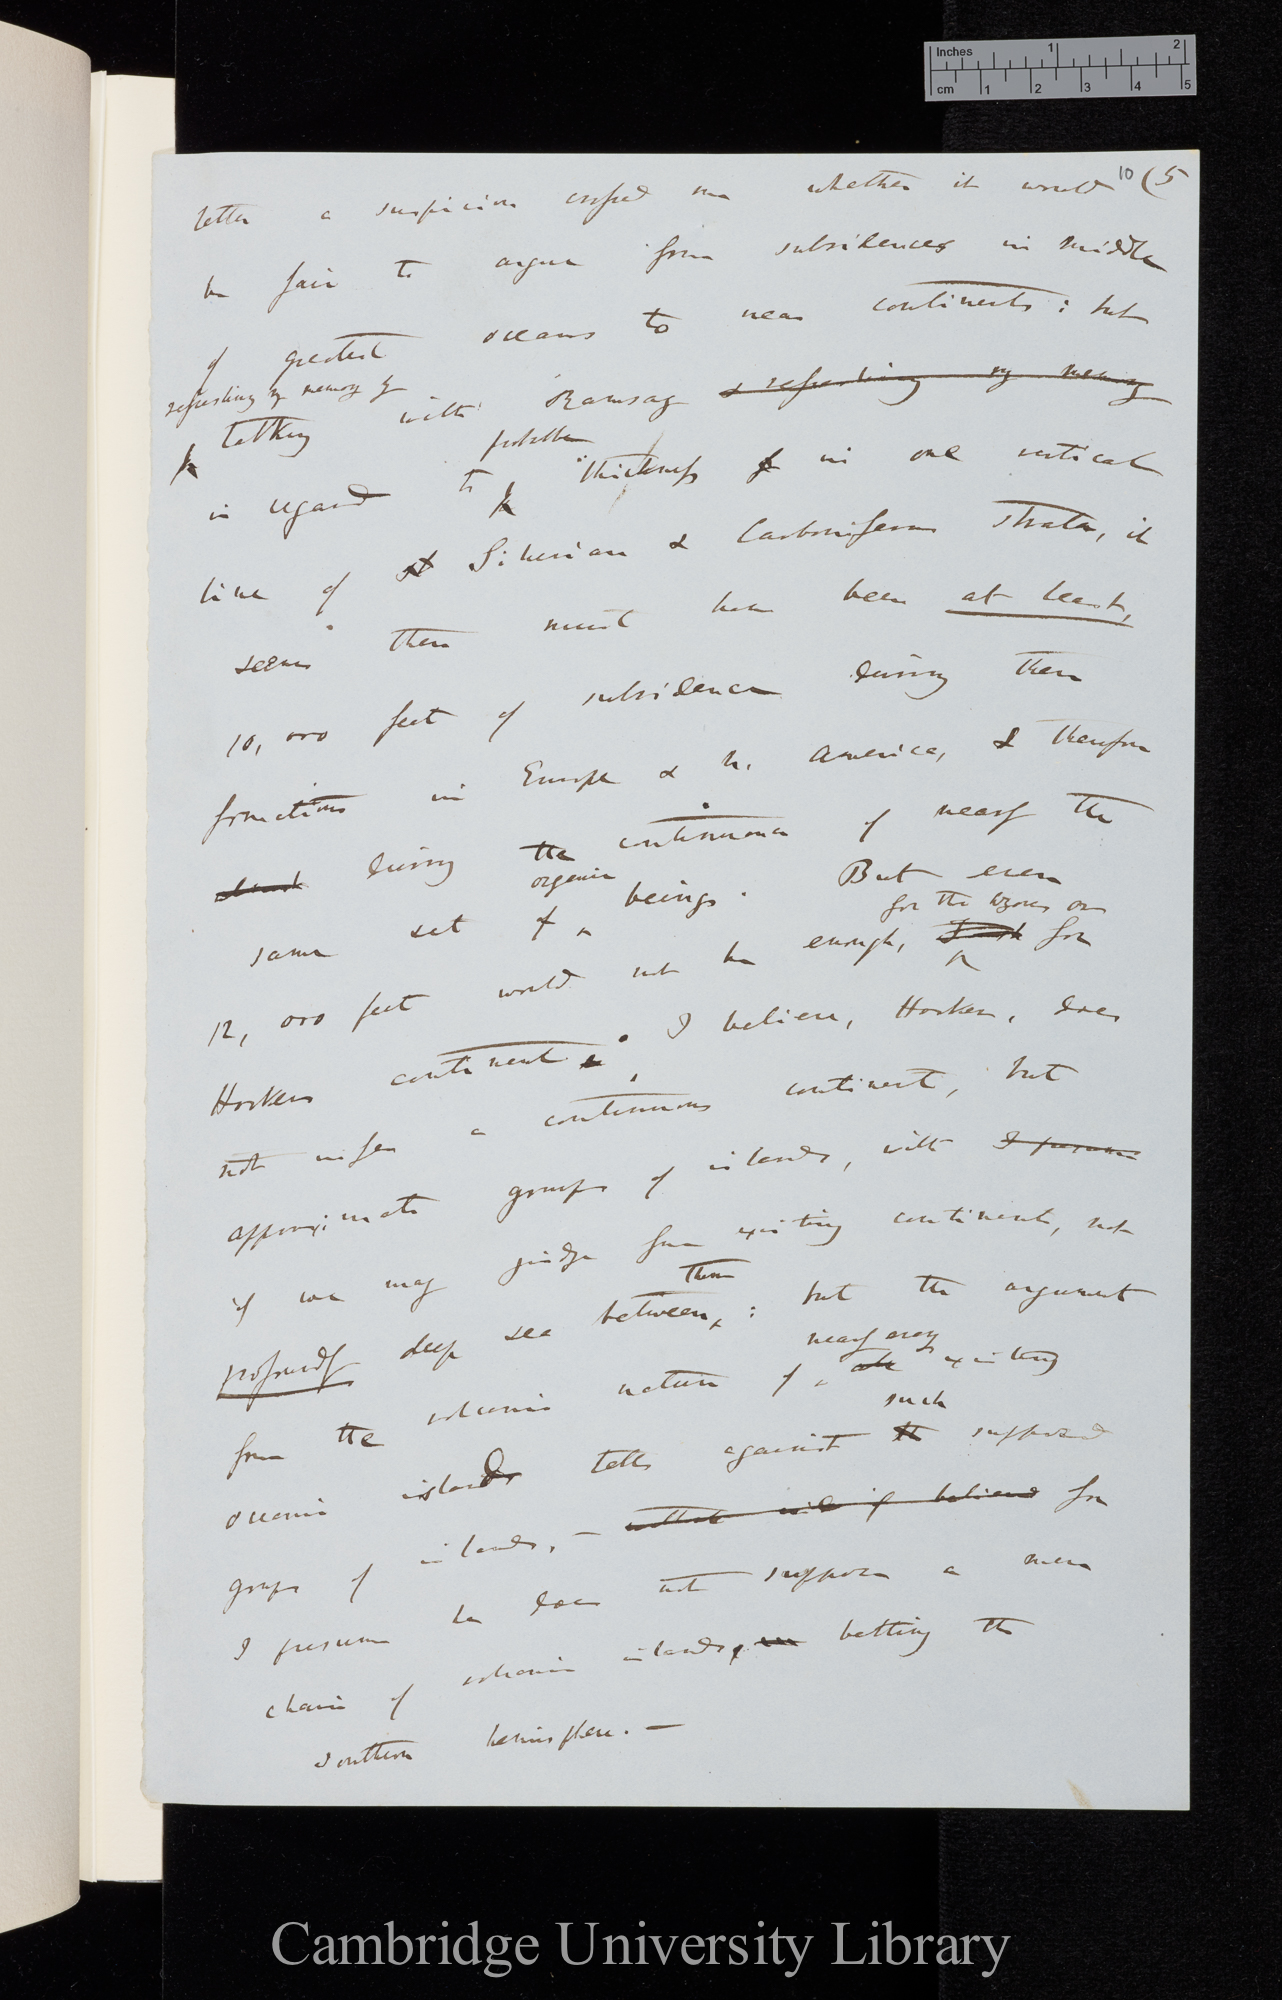 Inches 1 2
cm 1 2 3 4 5
10 (5
letter a suspicion crossed me whether it would
be fair to argue from subsidences in middle
of greatest oceans to near continents: but
refreshing my memory by
talking with Ramsay & refreshing my memory
probable
in regard to thickness in one vertical
line of Silurian & Carboniferous strata, it
seems there must have been at least,
10,000 feet of subsidence during these
formations in Europe & N. America, & therefore
during the continuance of nearly the
organic
same set of beings. But even
for the Azores or
12,000 feet would not be enough, for
Hookers continent. I believe, Hooker, does
not infer a continuous continent, but
approximate groups of islands, with I presume
if we may judge from existing continents, not
them
profoundly deep sea between: but the argument
nearly every
from the volcanic nature of all existing
such
oceanic islands tells against the supposed
groups of islands,— for
I presume he does not suppose a mere
chain of volcanic islands, belting the
southern hemisphere.—
Cambridge University Library